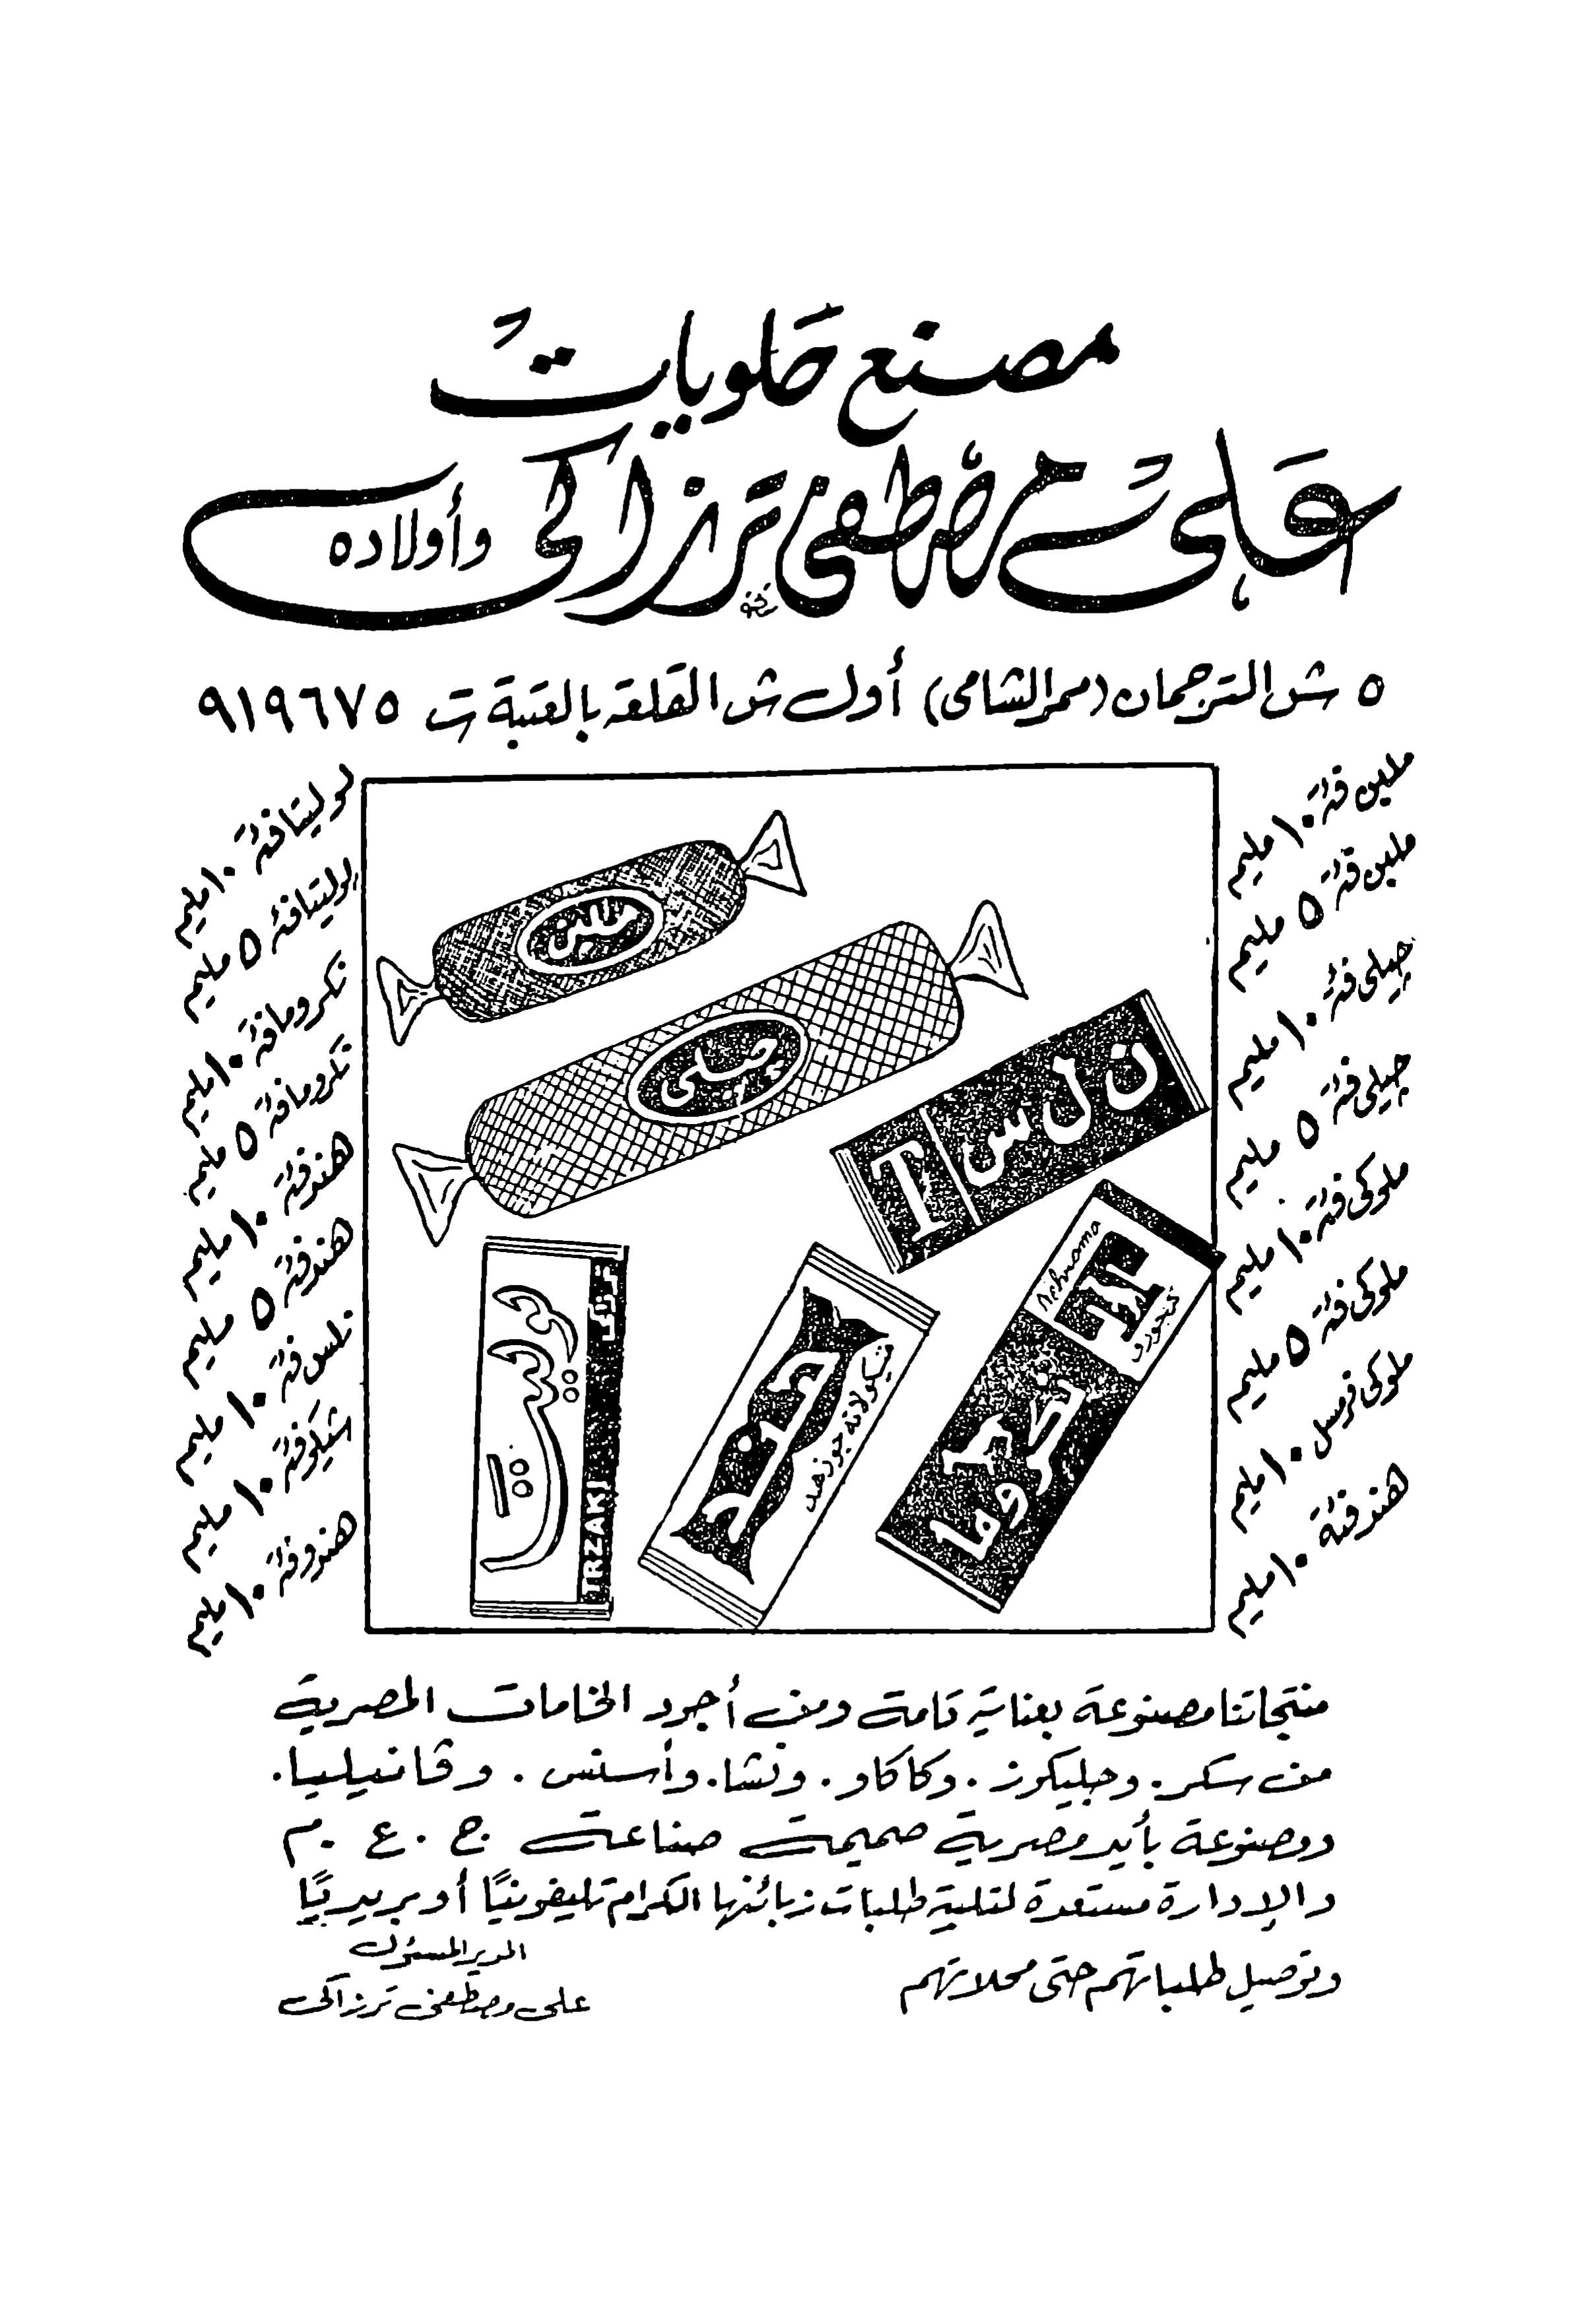 مصنع حلويات
على مصطفى ترزاكى وأولاده
٥ ش الترجمان (ممر الشامى) أول ش القلعه بالعتبة ت ٩١٩٦٧٥
ملبن فئة ١٠ مليم
ملبن فئة ٥ مليم
چيلى فئة ١٠ مليم
چيلى فئة ٥ مليم
ملوكى فئة ١٠ مليم
ملوكى فئة ٥ مليم
ملوكى فرمس ١٠ مليم
هند فئة ١٠ مليم
لوليتا فئة ١٠ مليم
لوليتا فئة ٥ مليم
نكروما فئة ١٠ مليم
نكروما فئة ٥ مليم
هند فئة ١٠ مليم
هند فئة ٥ مليم
نلس فئة ١٠ مليم
شيكو فئة ١٠ مليم
هندو فئة ١٠ مليم
ملبن
چيلى
ن ل س T
نكروما
هند
شيكولاته جوزهند
ترزاكى
TRZAKI
منتجاتنا مصنوعة بعناية تامة ومن أجود الخامات المصرية
من سكر. وجليكوز. وكاكاو. ونشا. وأسنس. وڤانيليا.
ومصنوعة بأيد مصرية صميمة صناعة ج. ع. م
والإدارة مستعدة لتلبية طلبات زبائنها الكرام تليفونيًا أو بريديًا
وتوصيل طلباتهم حتى محلاتهم
المدير المسئول
على مصطفى ترزاكى